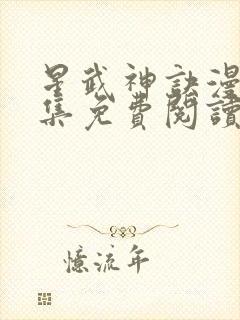 星武神訣漫
集免費閱讀
憶流年